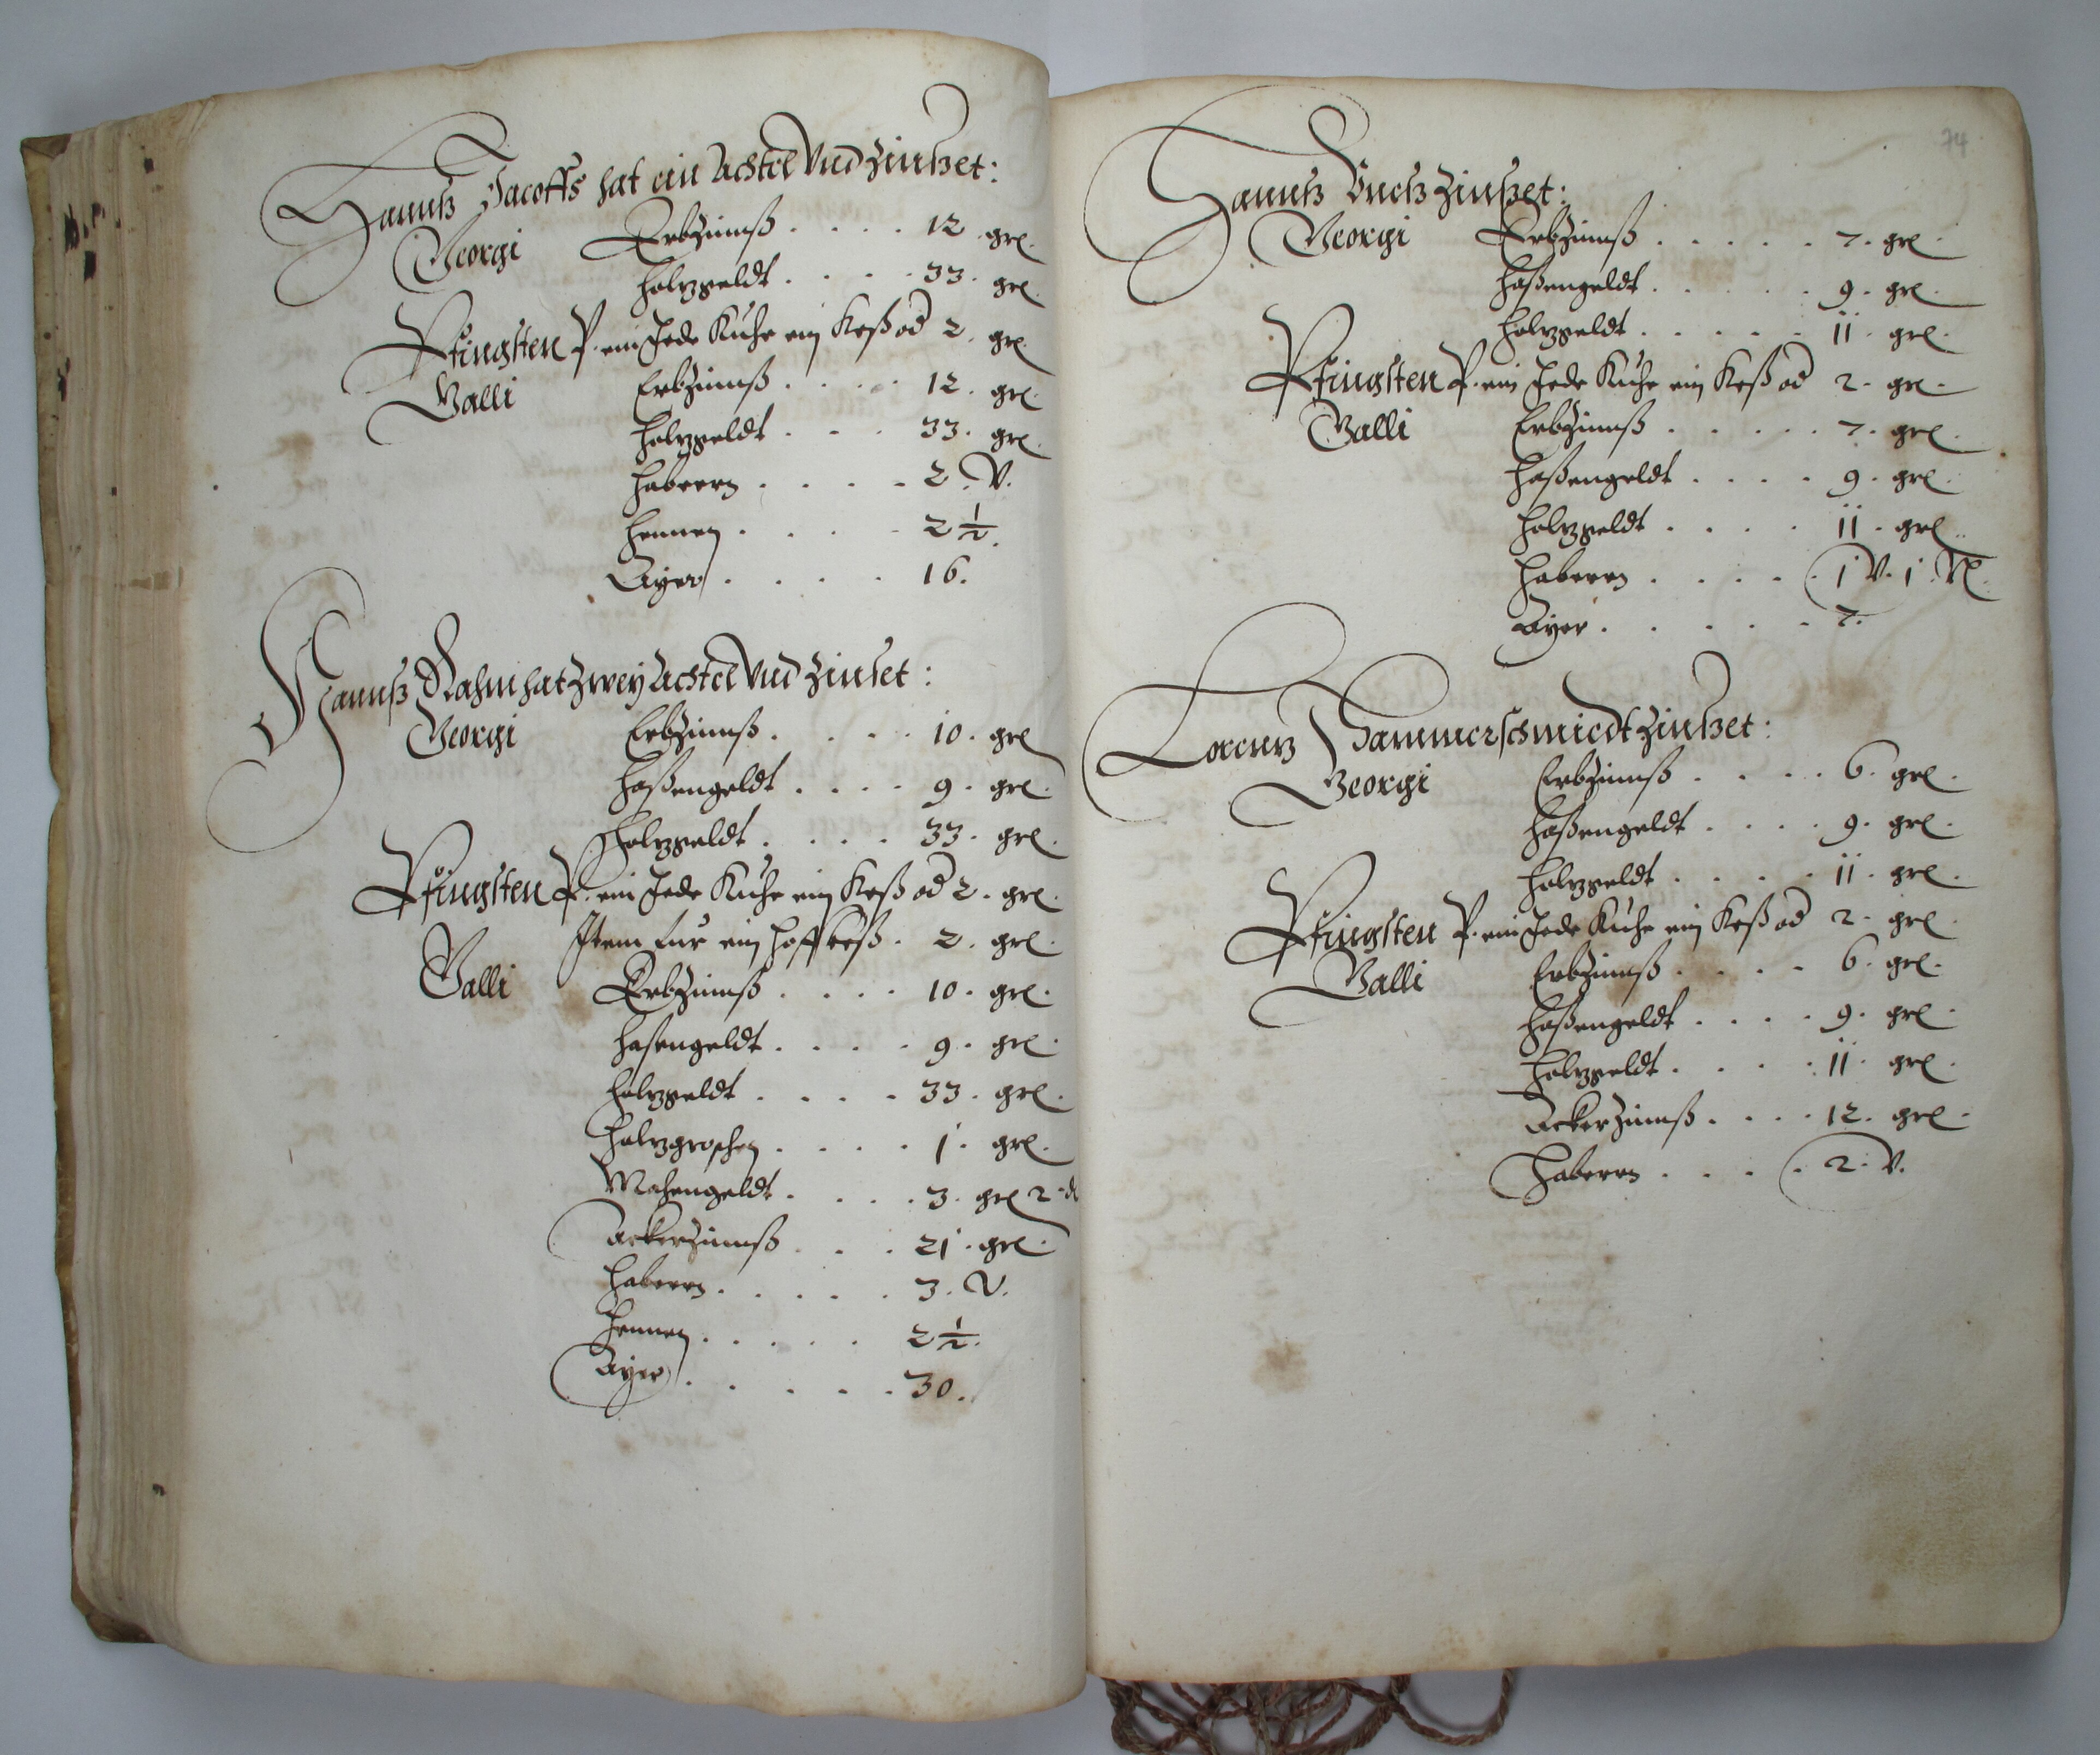 Hannß Jacoffs hat ein Achtel Vnd Zinßet:
Georgi Erbzinnß . . . . 12 grl.
Holtzgeldt . . . . 33. grl.
Pfingsten P. ein Jede Kuhe ein Keß od 2. grl.
Galli Erbzinnß . . . . 12. grl.
Holtzgeldt . . . 33. grl.
Haberrn . . . . 2. V.
Hennen . . . . 2 1/2.
Ayer . . . . 16.
Hannß Rahm hat Zwey Achtel Vnd Zinset:
Georgi Erbzinnß . . . . 10. grl
Haßengeldt . . . . 9. grl.
Holtzgeldt . . . . 33. grl.
Pfingsten P. ein Jede Kuhe ein Keß od 2. grl.
Item Fur ein Hoffkeß . 2. grl.
Galli Erbzinnß . . . . 10. grl.
Hasengeldt . . . . 9. grl.
Holtzgeldt . . . . 33. grl.
Holtzgroschen . . . . 1. grl.
Mahengeldt . . . . 3. grl 2. d
Ackerzinnß . . . 21. grl.
Haberrn . . . . . 3. V.
Hennen . . . . . 2 1/2.
Ayer . . . . . 30.
74
Hannß Zinßet:
Georgi Erbzinnß . . . . . 7. grl.
Haßengeldt . . . . . 9. grl.
Holtzgeldt . . . . . 11. grl.
Pfingsten P. ein Jede Kuhe ein Keß od 2. grl.
Galli Erbzinnß . . . . . 7. grl.
Haßengeldt . . . . 9. grl.
Holtzgeldt . . . . 11. grl.
Haberrn . . . . . 1 V. 1. Vl.
Ayer . . . . . 7.
Lorentz Hammerschmiedt Zinßet:
Georgi Erbzinnß . . . . 6. grl.
Haßengeldt . . . . 9. grl.
Holtzgeldt . . . . 11. grl.
Pfingsten P. ein Jede Kuhe ein Keß od 2. grl.
Galli Erbzinnß . . . . 6. grl.
Haßengeldt . . . . 9. grl.
Holtzgeldt . . . . 11. grl.
Ackerzinnß . . . . 12. grl.
Haberrn . . . . 2. V.